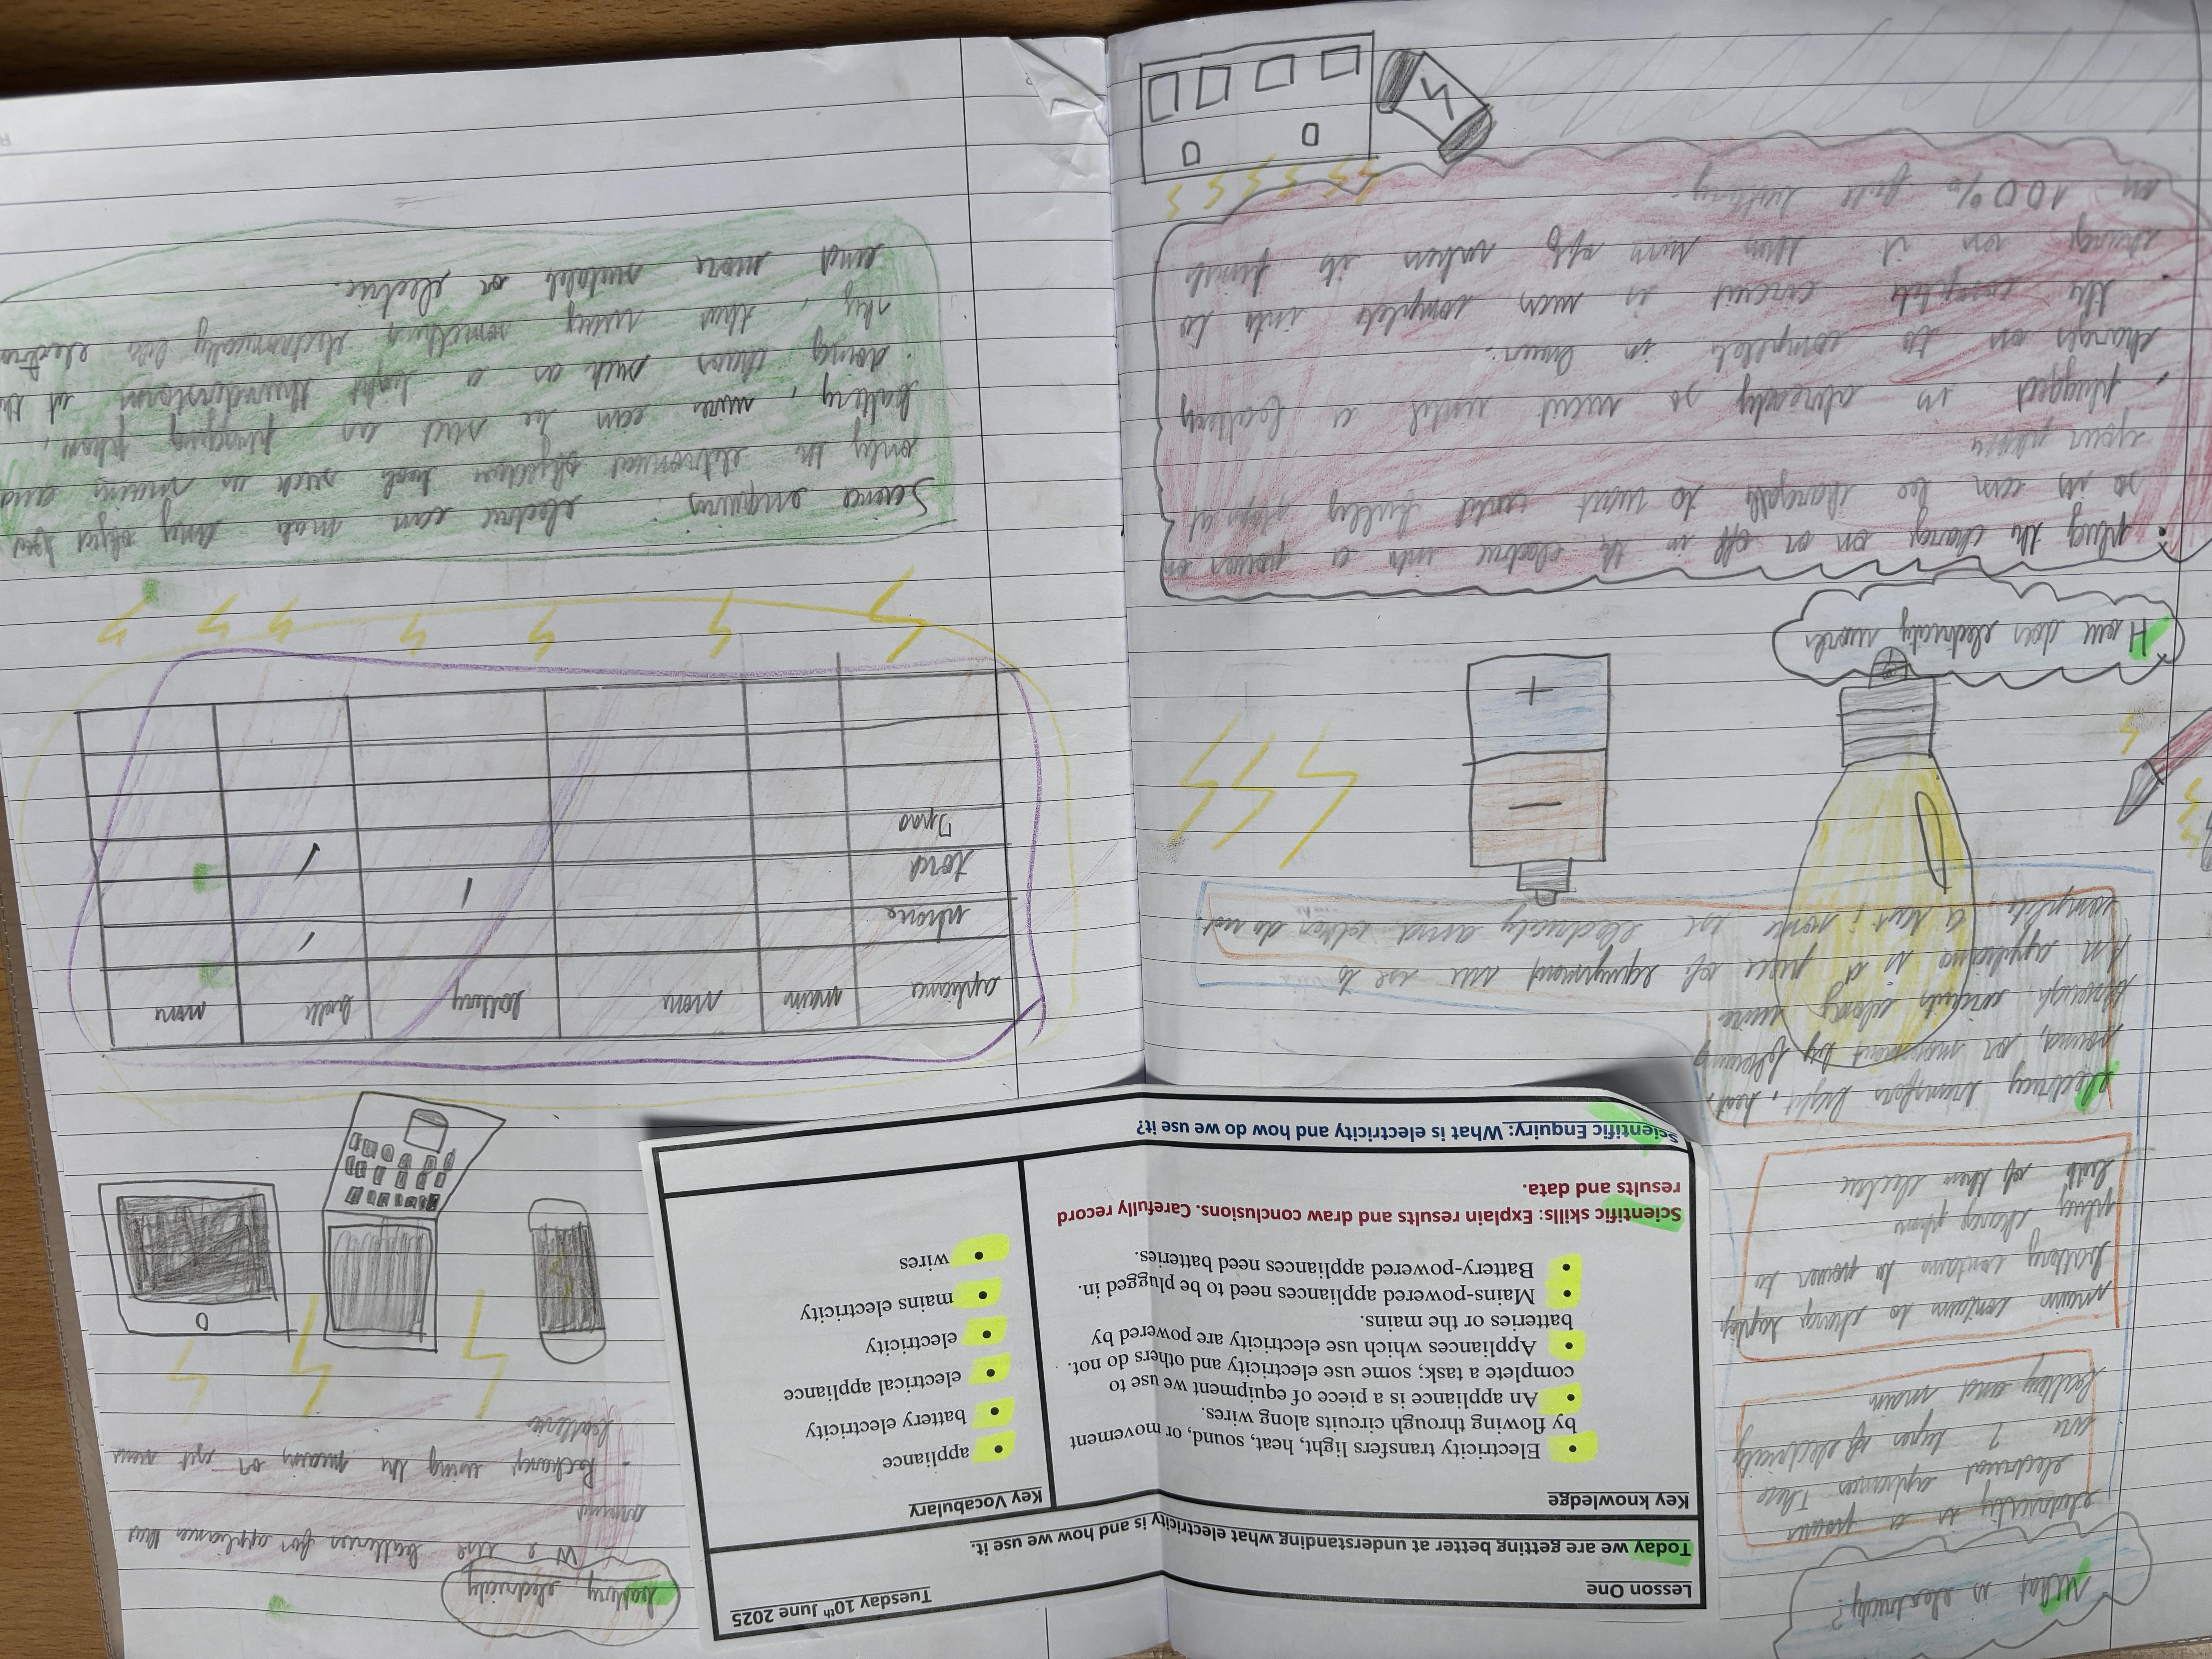 Lesson One
Tuesday 10th June 2025
Today we are getting better at understanding what electricity is and how we use it.
Key knowledge
• Electricity transfers light, heat, sound, or movement
by flowing through circuits along wires.
• An appliance is a piece of equipment we use to
complete a task; some use electricity and others do not.
• Appliances which use electricity are powered by
batteries or the mains.
• Mains-powered appliances need to be plugged in.
• Battery-powered appliances need batteries.
Scientific skills: Explain results and draw conclusions. Carefully record
results and data.
Key Vocabulary
• appliance
• battery electricity
• electrical appliance
• electricity
• mains electricity
• wires
Scientific Enquiry: What is electricity and how do we use it?
What is electricity?
electricity is a power
electrical apliances There
are 2 types of electricity
battery and main
main contain to charge laptop
battery contains to power to
plug charge phone
both of them electric
electricity transfers light, heat,
sound, or movement by flowing
through circuits along wire
An appliance is a piece of equipment we use to
complete a task; some use electricity and other do not.
+
−
How does electricity works
plug the charg on or off in th electric into a power on
so its can be chargde to wait until fulley stops at
your phone
plugged in already so must until a battery
charges on to complet in hour.
the complet circuit is mus complete into to
energy on it then turn off when its finish
on 100% full battery.
battery electricity
We use batteries for appliances that
- Recharge using the mains or get new
batteries
apliance main none battery both none
phone
torch
Ipad
Science enquires: electric can mak any object
only th eletronical objective tools such as wiring and
battery, wires can be such as plugging phone,
doing chaos such as a light thunderstorm at the
sky, thus using something electronically like
and more suitabl or electric.